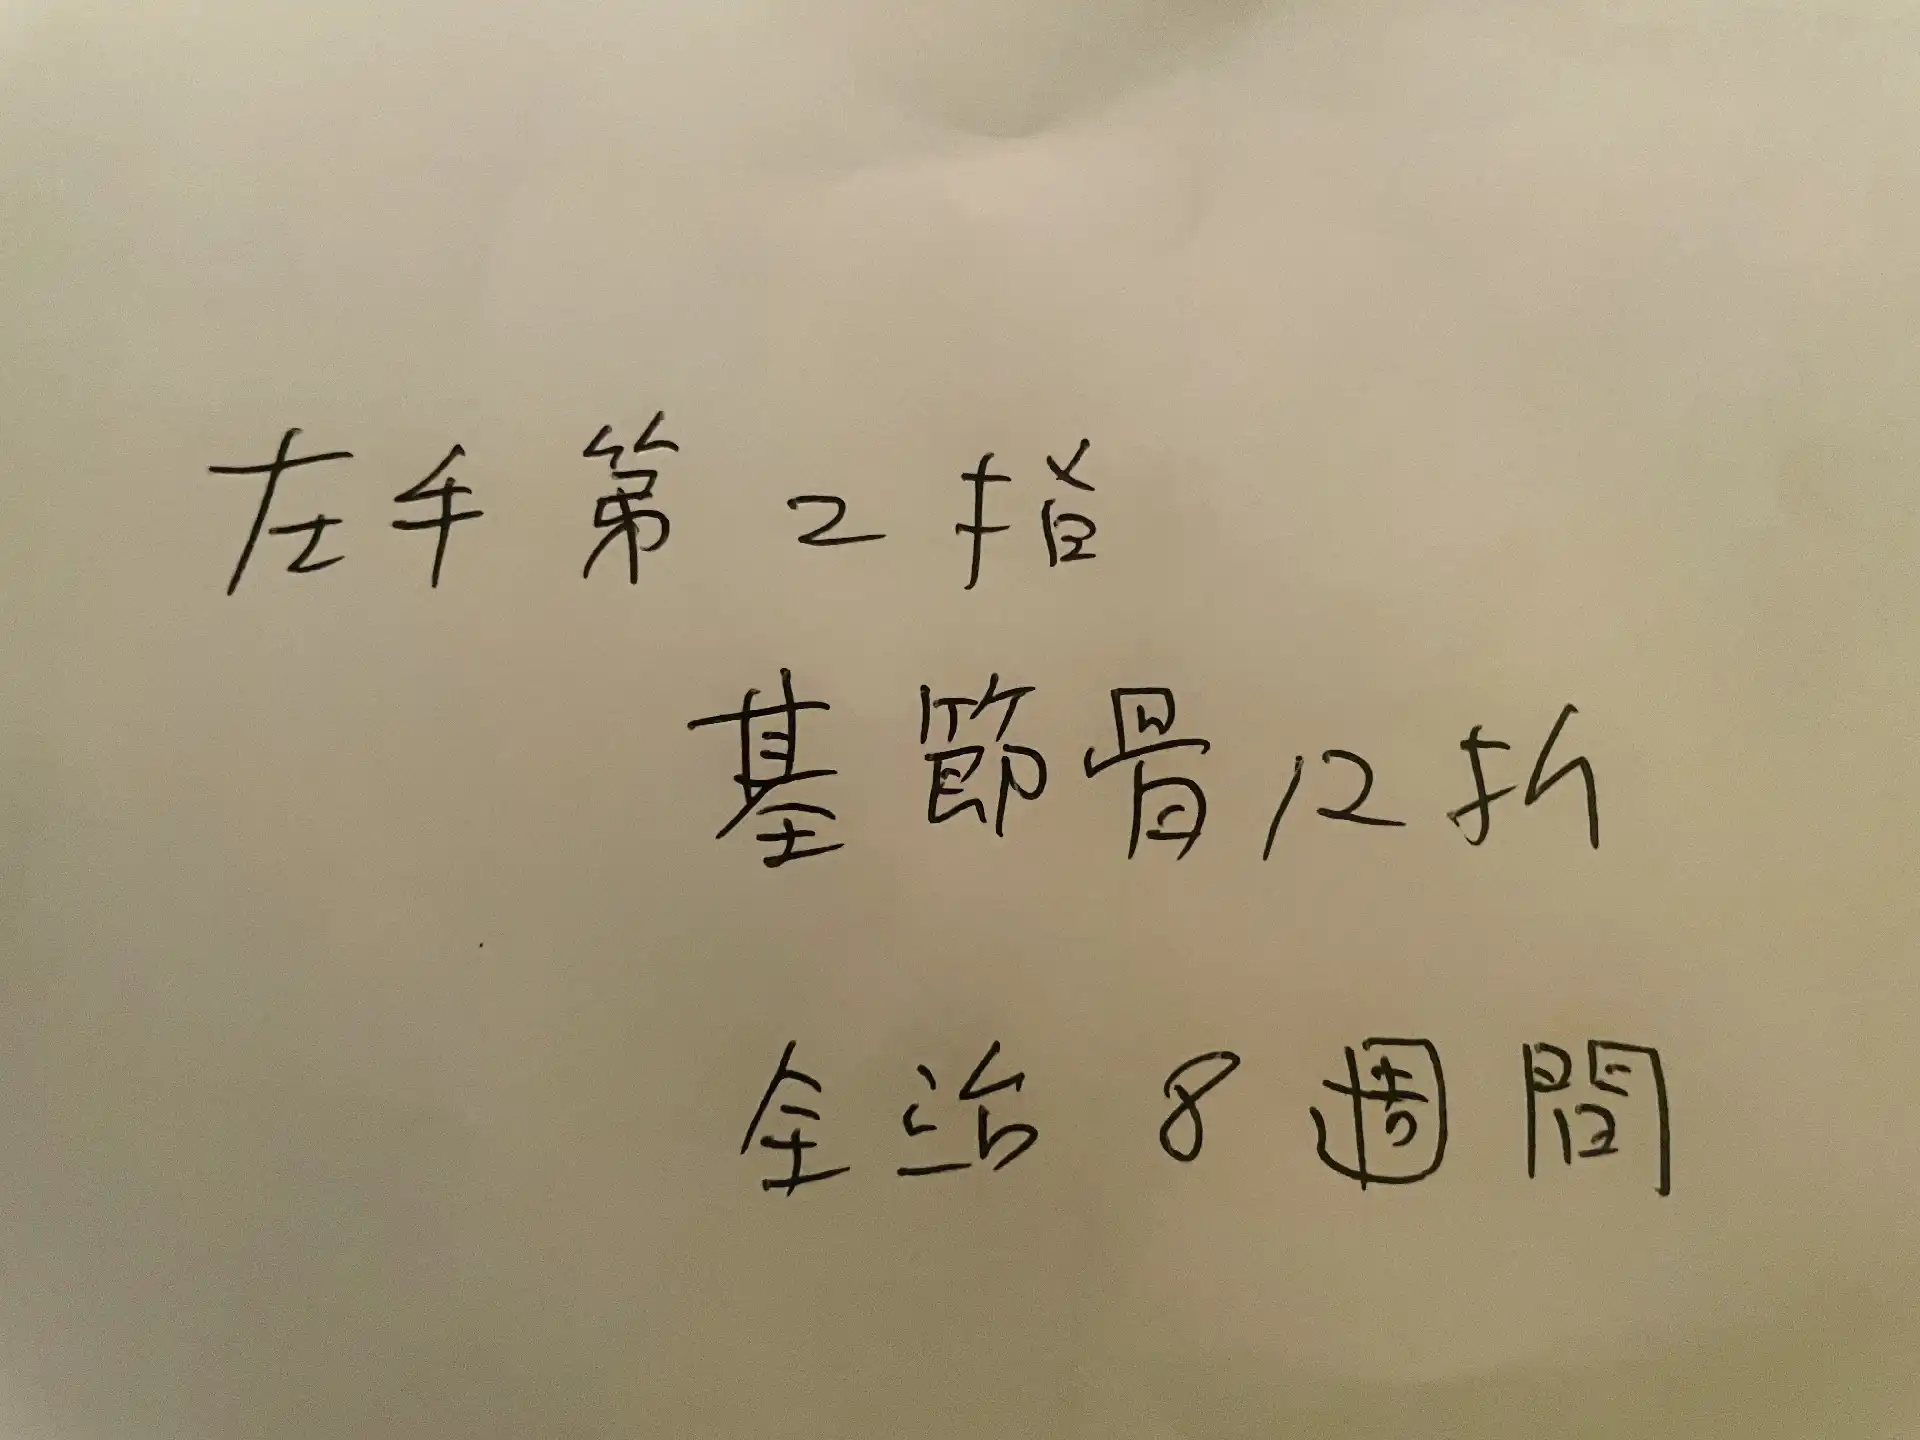 左手第2指
基節骨12折
全治8週間